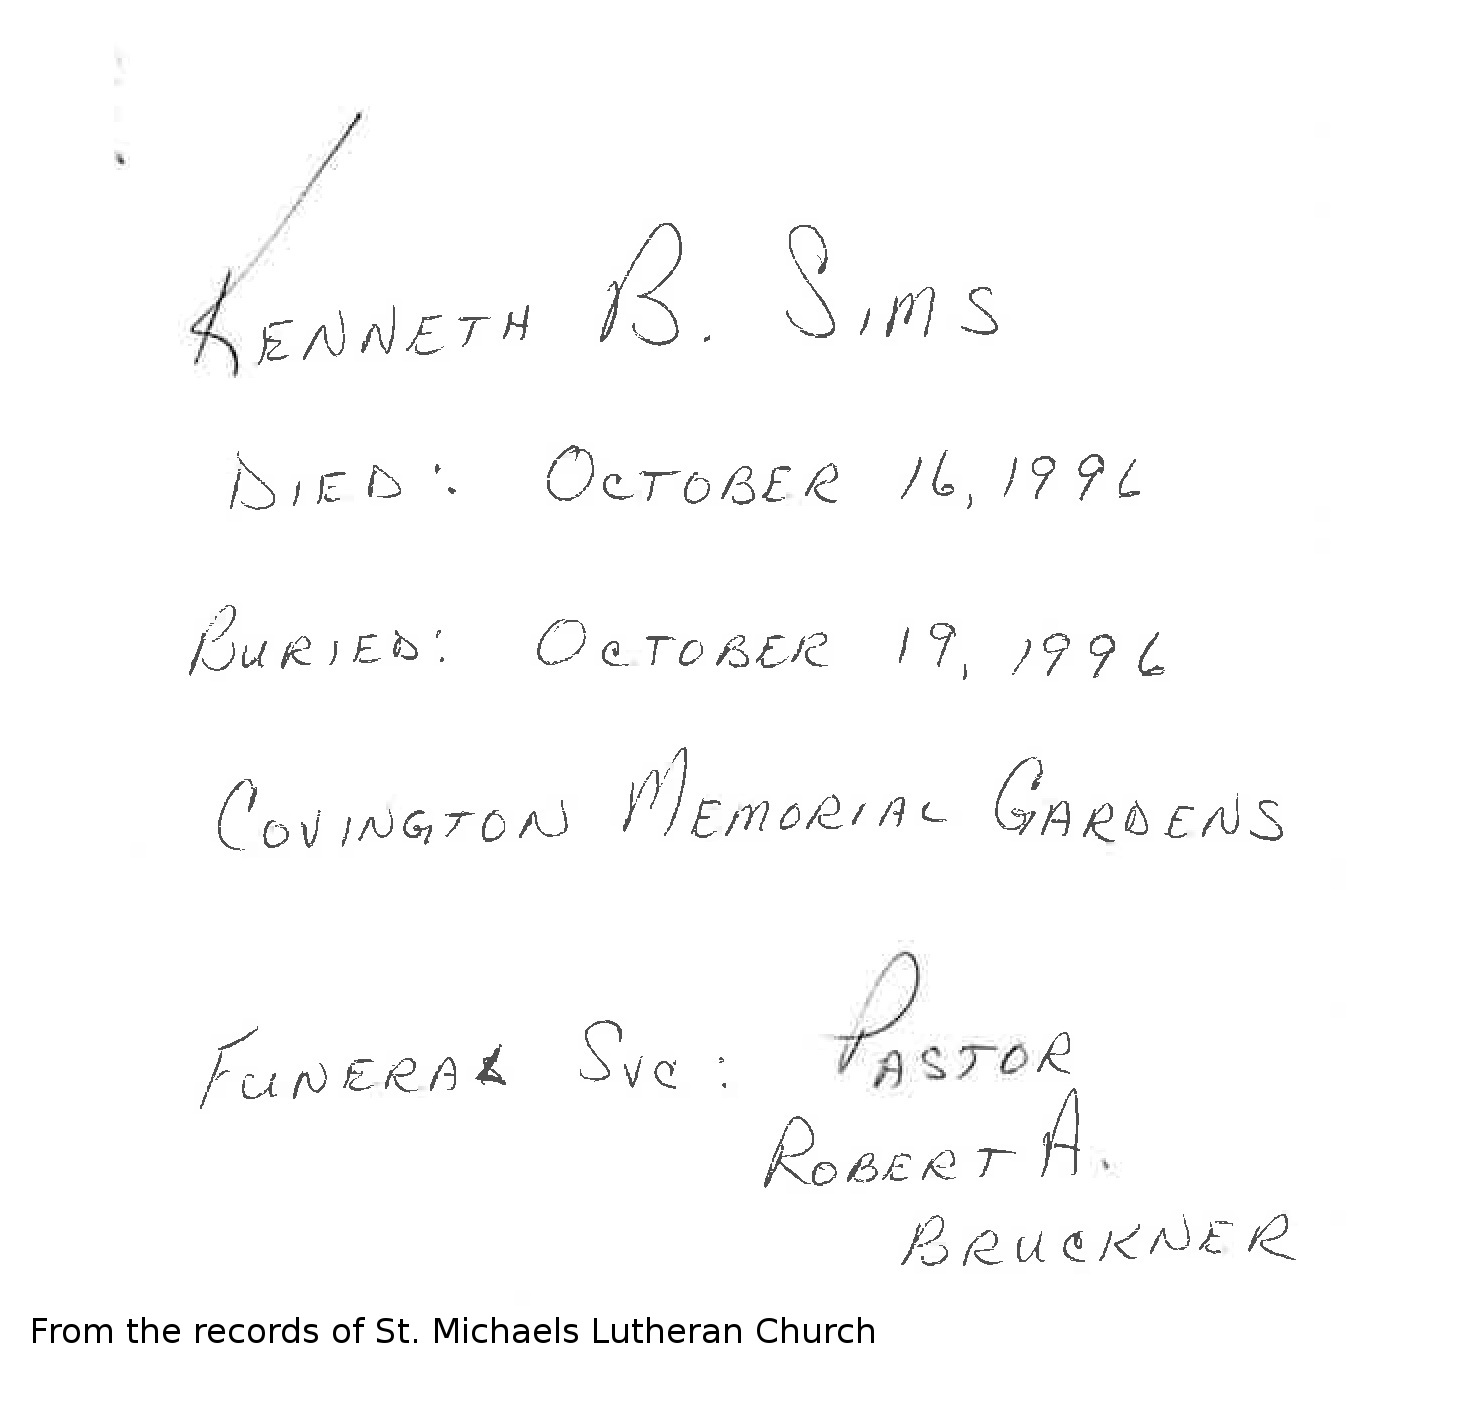 KENNETH B. SIMS
DIED: OCTOBER 16, 1996
BURIED: OCTOBER 19, 1996
COVINGTON MEMORIAL GARDENS
FUNERAL SVC: PASTOR
ROBERT A.
BRUCKNER
From the records of St. Michaels Lutheran Church